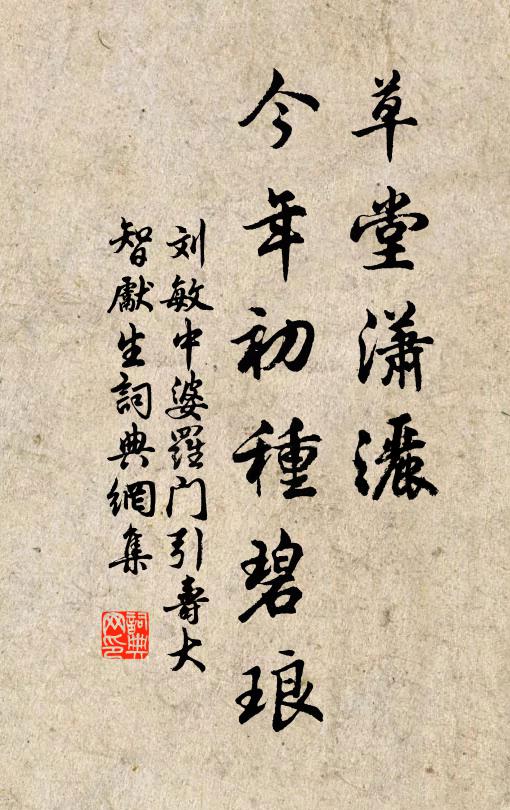 草堂瀟灑
今年初種碧琅
刘敏中婆羅门引壽大
智獻生詞典網集
詞典网印